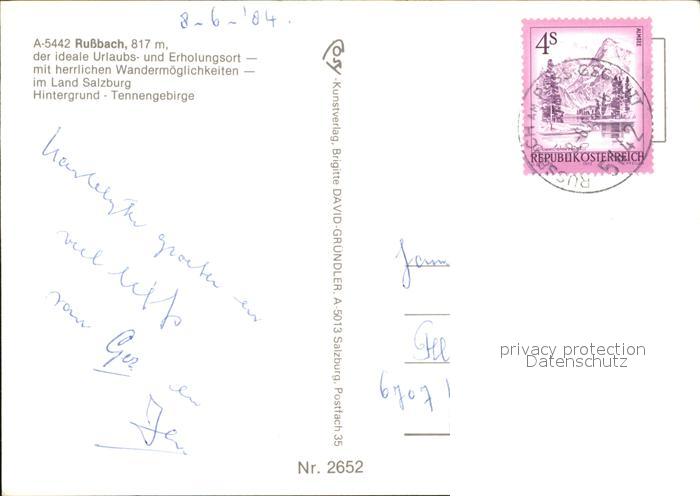 8-6-'84.
A-5442 Rußbach, 817 m,
der ideale Urlaubs- und Erholungsort —
mit herrlichen Wandermöglichkeiten —
im Land Salzburg
Hintergrund - Tennengebirge
Hartelijke groeten en
veel liefs
van Ger
en
Kunstverlag, Brigitte DAVID-GRÜNDLER, A-5013 Salzburg, Postfach 35
4S
ALMSEE
REPUBLIK ÖSTERREICH
RUSSBACH AM PASS GSCHÜTT
5442
6707
privacy protection
Datenschutz
Nr. 2652